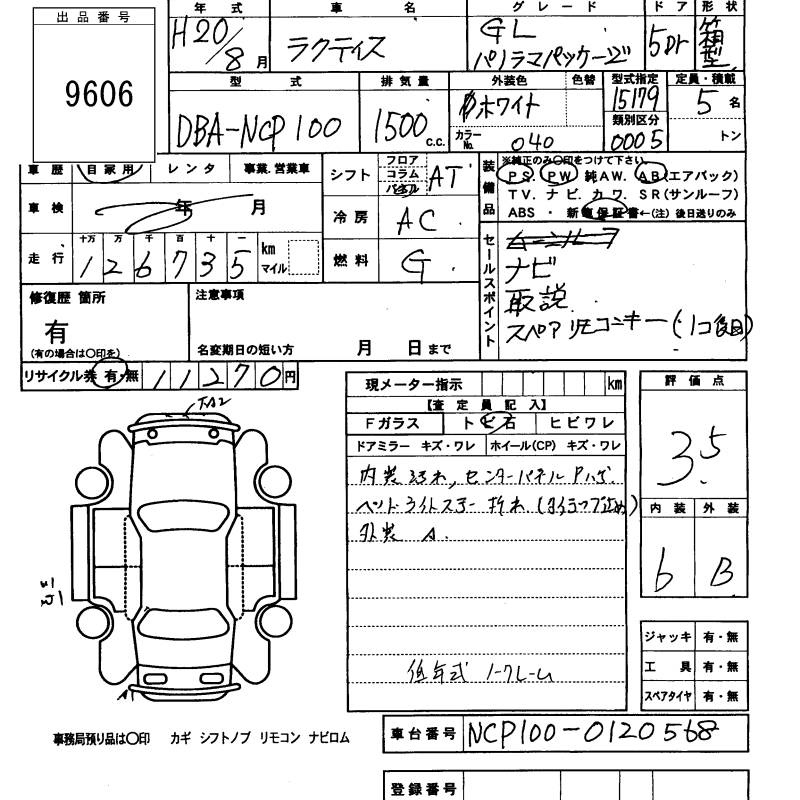 出品番号
9606
年式 車名 グレード ドア 形状
H20/8月 ラクティス GL パノラマパッケージ 5Dr 箱型
型式 排気量 外装色 色替 型式指定 定員・積載
DBA-NCP100 1500c.c. ホワイト 15179 5名
カラーNo. 040 類別区分 0005 トン
車歴 自家用 レンタ 事業.営業車
シフト フロア コラム パネル AT
装備品 ※純正のみ〇印をつけて下さい。
PS. PW 純AW. AB(エアバック)
TV. ナビ. カワ. SR(サンルーフ)
ABS ・ 新車保証書←(注) 後日送りのみ
車検 年 月
冷房 AC
走行 十万 万 千 百 十 一 km マイル
126735
燃料 G
セールスポイント
ナビ
取説
スペアリモコンキー
修復歴 箇所
有
(有の場合は〇印を)
注意事項
名変期日の短い方 月 日まで
リサイクル券 有・無 11270円
現メーター指示 km
【査定員記入】
Fガラス トビ石 ヒビワレ
ドアミラー キズ・ワレ ホイール(CP) キズ・ワレ
内装汚れ, センターパネルPハゲ
ヘッドライトステー折れ
外装 A
低年式 ノークレーム
評価点
3.5
内装 外装
6 B
ジャッキ 有・無
工具 有・無
スペアタイヤ 有・無
事務局預り品は〇印 カギ シフトノブ リモコン ナビロム
車台番号 NCP100-0120568
登録番号